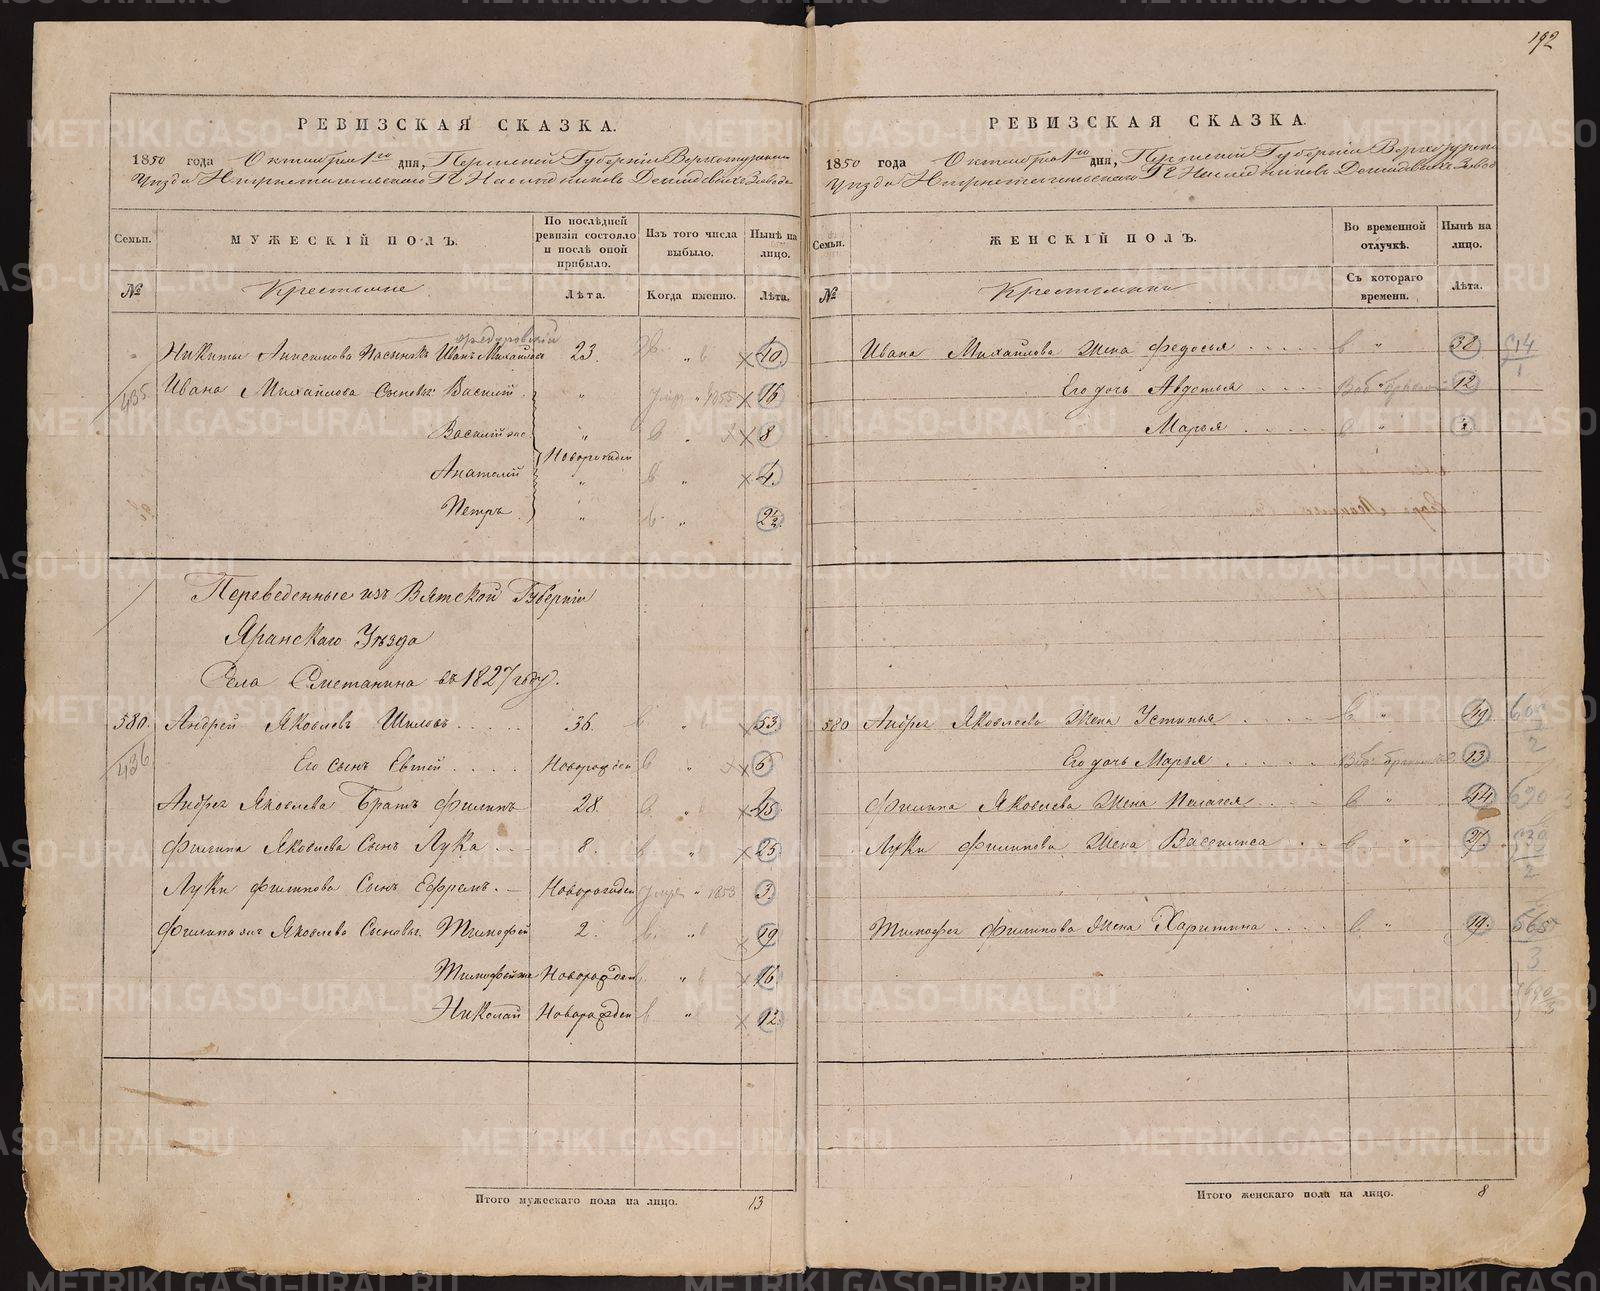 192
РЕВИЗСКАЯ СКАЗКА.
1850 года Октября 1го дня, Пермской Губернiи Верхотурскаго
Уѣзда Нижнетагильскаго Гг Наслѣдниковъ Демидовыхъ Завода
Семьи. МУЖЕСКIЙ ПОЛЪ. По послѣдней ревизiи состояло и послѣ оной прибыло. Изъ того числа выбыло. Нынѣ на лицо.
№ Крестьяне Лѣта. Когда именно. Лѣта.
Никиты Пасынокъ Иванъ Михайловъ 23. 40.
435 Ивана Михайлова Сыновья Василий " " 1855 16
Василий же " " 8
Новорожден
Анатолий " " 4.
Петръ " " 2½
Переведенные изъ Вятской Губернiи
Яранскаго Уѣзда
Села Сметанина въ 1827 году.
580. Андрей Яковлевъ Шиловъ 36. " 53
436 Его сынъ Евтей Новорожден 6
Андрея Яковлева Братъ Филипъ 28. " 45
Филипа Яковлева Сынъ Лука 8. " 25
Луки Филипова Сынъ Ефремъ Новорожден " 1853 3.
Филипа же Яковлева Сыновья Тимофей 2. " 19
Тимофей же Новорожден " 16
Николай Новорожден " 12.
Итого мужескаго пола на лицо. 13
РЕВИЗСКАЯ СКАЗКА.
1850 года Октября 1го дня, Пермской Губернiи Верхотурска
Уѣзда Нижнетагильскаго Гг Наслѣдниковъ Демидовыхъ Завод
Семьи. ЖЕНСКIЙ ПОЛЪ. Во временной отлучкѣ. Нынѣ на лицо.
№ Крестьянки Съ котораго времени. Лѣта.
Ивана Михайлова Жена Федосья " 38
Его дочь Авдотья 12
Марья "
580 Андрея Яковлева Жена Устинья " 49
Его дочь Марья 13
Филипа Яковлева Жена Пелагея " 44
Луки Филипова Жена Василиса " 27
Тимофея Филипова Жена Харитина " 19.
565
3
Итого женскаго пола на лицо. 8
METRIKI.GASO-URAL.RU